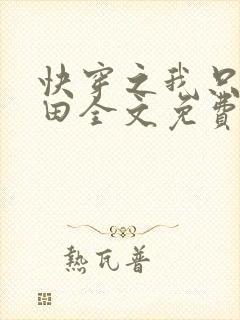 快穿之我只
田全文免费
熱瓦普